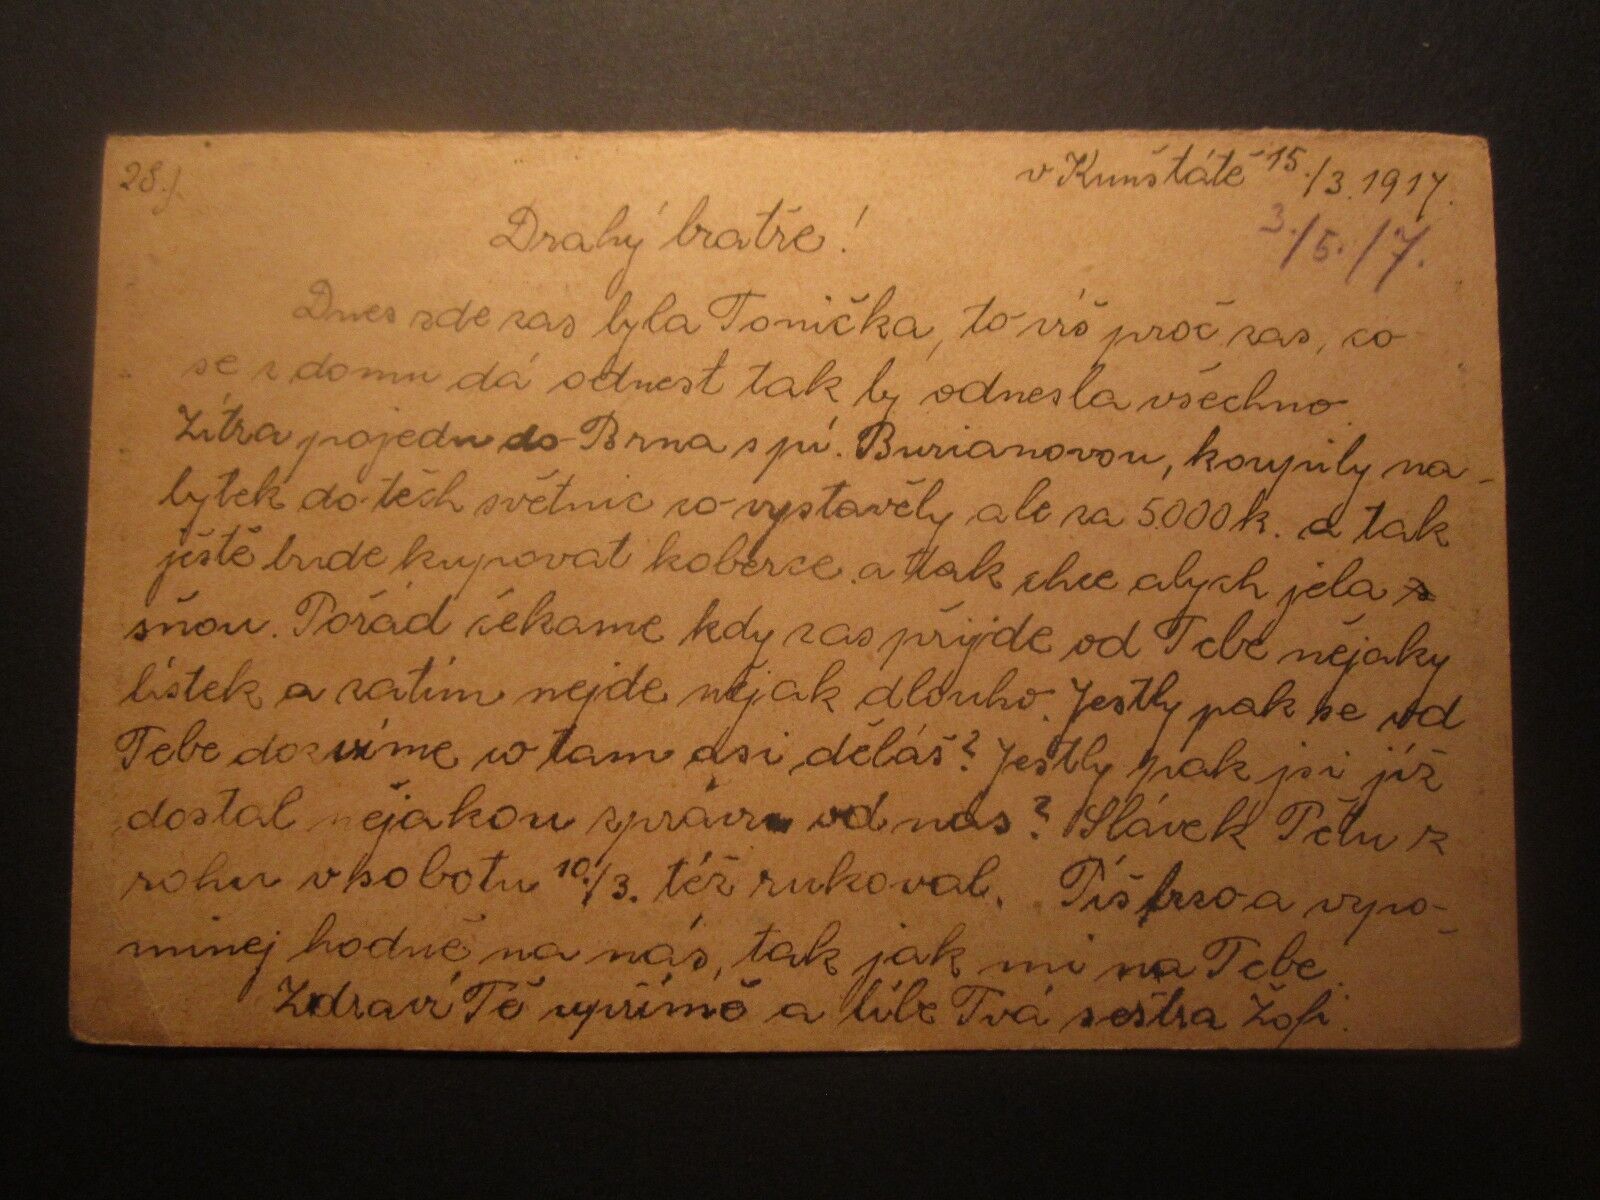 28./.
v Kunštátě 15./3. 1917.
3./5./7.
Drahý bratře!
Dnes zde zas byla Tonička, to víš proč zas, co
se z domu dá odnest tak by odnesla všechno.
Zítra pojedu do Brna s pí. Burianovou, koupily na-
bytek do těch světnic co vystavěly ale za 5.000 k. a tak
ještě bude kupovat koberce a tak chce abych jela s
sňou. Pořád čekame kdy zas přijde od Tebe nějaky
lístek a zatím nejde nějak dlouho. Jestly pak se od
Tebe dozvíme co tam asi děláš? Jestly pak jsi již
dostal nějakou zprávu od nás? Slávek Petu z
rohu v sobotu 10./3. též rukoval. Piš brzo a vzpo-
minej hodně na nás, tak jak mi na Tebe.
Zdraví Tě upřímně a líbe Tvá sestra Žofi.